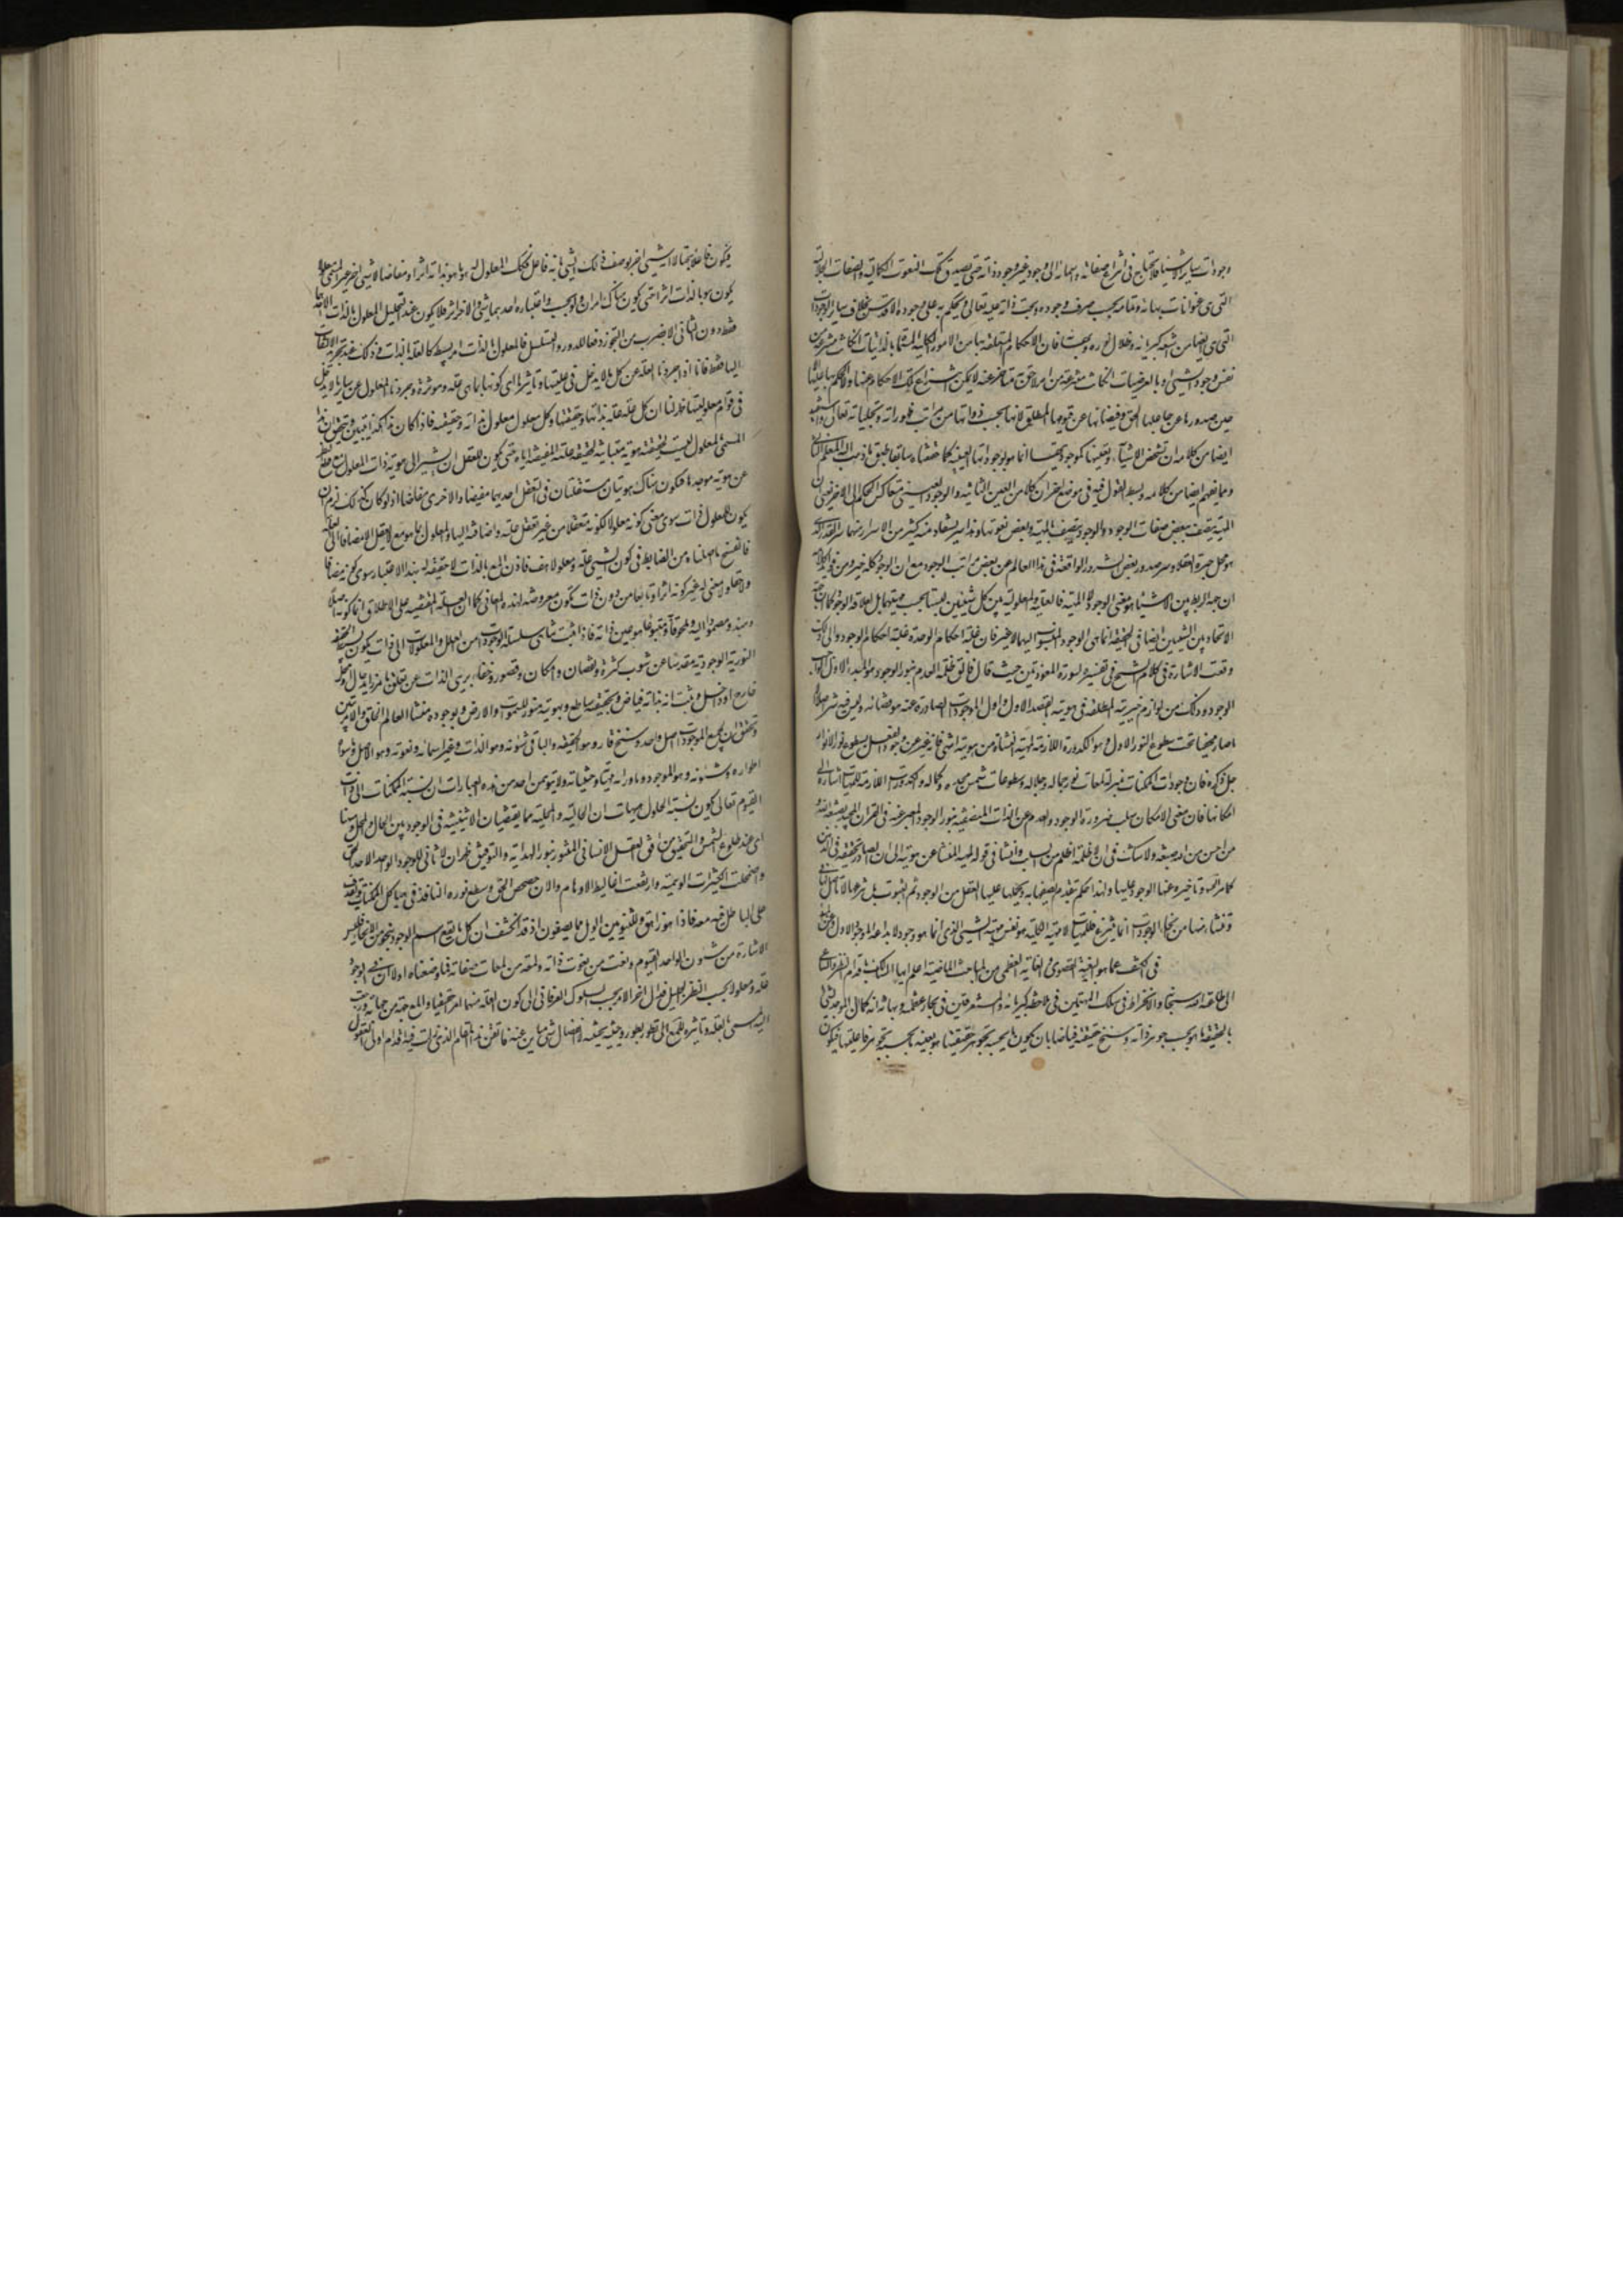 وجودات سائر الاشياء فلا يحتاج في انتزاع صفاته واسمائه الى وجود غير وجود ذاته حتى يصدق تلك النعوت الكمالية والصفات الجلالية
التي هي عنوانات بهائه وعلامة بحسب صرف وجوده وبحت ذاته عليه تعالى ويحكم به على وجوده الاقدس بخلاف سائر الوجودات
التي هي ايضا من اشعة كبريائه وظلال نوره وبهائه فان الاحكام المتعلقة بها من الامور الكلية المسماة بالذاتيات ان كانت منتزعة من
نفس وجود الشيء او بالعرضيات ان كانت منتزعة من امر لاحق متاخر عنه لا يمكن انتزاع تلك الاحكام عنها والحكم بها عليها الا
حين صدورها عن جاعلها الحق وفيضانها عن قيومها المطلق لانها بحسب ذواتها من مراتب ظهوراته وتجلياته تعالى واستفيد
ايضا من كلامه ان تشخص الاشياء وتعينها كموجوديتها انما هو بوجوداتها العينية كما حققناه سابقا طبق ما ذهب اليه المعلم الثاني
ومما يفهم ايضا من كلامه وبسط القول فيه في موضع اخر ان كلا من العين الثابتة والوجود العيني متعاكس الحكم الى الاخر يعني ان
المهية يتصف ببعض صفات الوجود والوجود يتصف بالمهية وبعض نعوتها وهذا سر يستفاد منه كثير من الاسرار منها سر القدر الذي
هو محل حيرة العقلاء وسر صدور بعض الشرور الواقعة في هذا العالم عن بعض مراتب الوجود مع ان الوجود كله خير ومن فوائده
ان جهة الربط بين الاشياء هو معنى الوجود لا المهية فالعلية والمعلولية بين كل شيئين ليستا بحسب مهيتهما بل لعلاقة الوجود كما ان جهة
الاتحاد بين الشيئين ايضا في الحقيقة انما هي الوجود المنسوب اليهما لا غير فان غلبة احكام الوحدة من غلبة احكام الوجود والى ذلك
وقعت الاشارة في كلام الشيخ في تفسيره لسورة المعوذتين حيث قال فالق ظلمة العدم بنور الوجود هو المبدء الاول الواجب
الوجود وذلك من لوازم خيريته المطلقة في هويته بالقصد الاول واول الموجودات الصادرة عنه هو قضائه وليس فيه شر اصلا الا
ما صار مخفيا تحت سطوع النور الاول وهو الكدورة اللازمة لمهيته المنشاة من هويته انتهى فانه عبر عن وجود العقل بسطوع نور الانوار
جل ذكره فان وجودات الممكنات بمنزلة لمعات نور جماله وجلاله وسطوعات شمس مجده وكماله والكدورات اللازمة للمهيات اشارة الى
امكاناتها فان معنى الامكان سلب ضرورة الوجود والعدم عن الذات المنصبغة بنور الوجود المعبر عنه في القران المجيد بصبغة الله
من احسن من الله صبغة ولا شك في ان لا ظلمة اظلم من السلب وانشا في قوله لمهيته المنشا عن هويته الى ان الصادر بالحقيقة
كما مر وتاخيره عنها الوجود عليها
وتنشا منها من تجلي الوجود
في الكشف عما هو البغية القصوى والغاية العظمى من المباحث الماضية اعلم ايها السالك باقدام النظر والساعي
الى طاعة الله سبحانه والانخراط في سلك المهيمين في ملاحظة كبريائه والمستغرقين في بحار عظمته وبهائه انه كما ان الموجد لشيء
بالحقيقة ما هو بحسب جوهر ذاته وسنخ حقيقته فياضا بان يكون ما بحسب تجوهر حقيقتها هو بعينه ما بحسب تجوهر فاعليتها فيكون
فيكون فاعلا بحتا لا انه شيء اخر يوصف ذلك الشيء بانه فاعل فكذلك المعلول له هو ما هو بذاته اثر او مفاض لا شيء اخر غير المسمى معلولا
يكون هو بالذات اثرا حتى يكون هناك امران ولو بحسب واعتباره احدهما شيء والاخر اثر فلا يكون عند التحليل المعلول بالذات الا احدهما
فقط دون الثاني الا بضرب من التجوز دفعا للدور والتسلسل فالمعلول بالذات امر بسيط كالعلة بالذات وذلك عند تجريد الالتفات
اليها فقط فانا اذا جردنا العلة عن كل ما لا يدخل في عليتها وتاثيرها اي كونها بما هي علة وموثرة وجردنا المعلول عن سائر ما لا يدخل
في قوام معلوليتها ظهر لنا ان كل علة علة بذاتها وحقيقتها وكل معلول معلول بذاته وحقيقته فاذا كان هذا هكذا يتبين ويتحقق ان هذا
المسمى بالمعلول ليست لحقيقته هوية مباينة لحقيقة علته المفيضة اياه حتى يكون للعقل ان يشير الى هوية ذات المعلول مع قطع النظر
عن هوية موجدها فيكون هناك هويتان مستقلتان في التعقل احديهما مفيضا والاخرى مفاضا اذ لو كان كذلك لزم ان
يكون للمعلول ذات سوى معنى كونه معلولا لكونه متعقلا من غير تعقل علته واضافته اليها والمعلول بما هو مع لا يعقل الا مضافا الى العلة
فانفسخ ما اصلناه من الضابط في كون الشيء علة ومعلولا هف فاذن المع بالذات لا حقيقة له بهذا الاعتبار سوى كونه مضافا
ولاحقا ولا معنى له غير كونه اثرا وتابعا من دون ذات تكون معروضة لهذه المعاني كما ان العلة المفيضة على الاطلاق انما كونه اصلا
ومبدء ومصمودا اليه وملحوقا به ومتبوعا هو عين ذاته فاذا ثبت تناهي سلسلة الوجودات من العلل والمعلولات الى ذات يكون بسيط الحقيقة
النورية الوجودية مقدسا عن شوب كثرة ونقصان وامكان وقصور وخفاء بريء الذات عن تعلق بامر زايد حال او محل
خارج او داخل وثبت انه بذاته فياض وبحقيقته ساطع وبهويته منور للسموات والارض وبوجوده منشا لعالم الخلق والامر تبين
وتحقق ان لجميع الموجودات اصل واحد وسنخ فارد هو الحقيقة والباقي شئونه وهو الذات وغيره اسمائه ونعوته وهو الاصل وما سواه
اطواره وشئونه وهو الموجود وما ورائه جهاته وحيثياته ولا يتوهمن احد من هذه العبارات ان نسبة الممكنات الى ذات
القيوم تعالى يكون نسبة الحلول هيهات ان الحالية والمحلية مما يقتضيان الاثنينية في الوجود بين الحال والمحل وههنا
اي عند طلوع شمس التحقيق من افق العقل الانساني المتنور بنور الهداية والتوفيق ظهر ان لا ثاني للوجود الواحد الاحد الحق
واضمحلت الكثرات الوهمية وارتفعت اغاليط الاوهام والان حصحص الحق وسطع نوره النافذ في هياكل الممكنات يقذف
على الباطل فيدمغه فاذا هو زاهق وللثنويين الويل مما يصفون اذ قد انكشف ان كل ما يقع اسم الوجود بنحو من الانحاء فليس
الا شان من شئون الواحد القيوم ونعت من نعوت ذاته ولمعة من لمعات صفاته فما وضعناه اولا ان في الوجود
علة ومعلولا بحسب النظر الجليل قد ال اخر الامر بحسب السلوك العرفاني الى كون العلة منهما امرا حقيقيا والمع جهة من جهاته ورجعت
علية المسمى بالعلة وتاثيره للمع الى تطوره بطور وحيثية بحيثية لا انفصال شيء مباين عنه فاتقن هذا المقام الذي زلت فيه اقدام اولي العقول